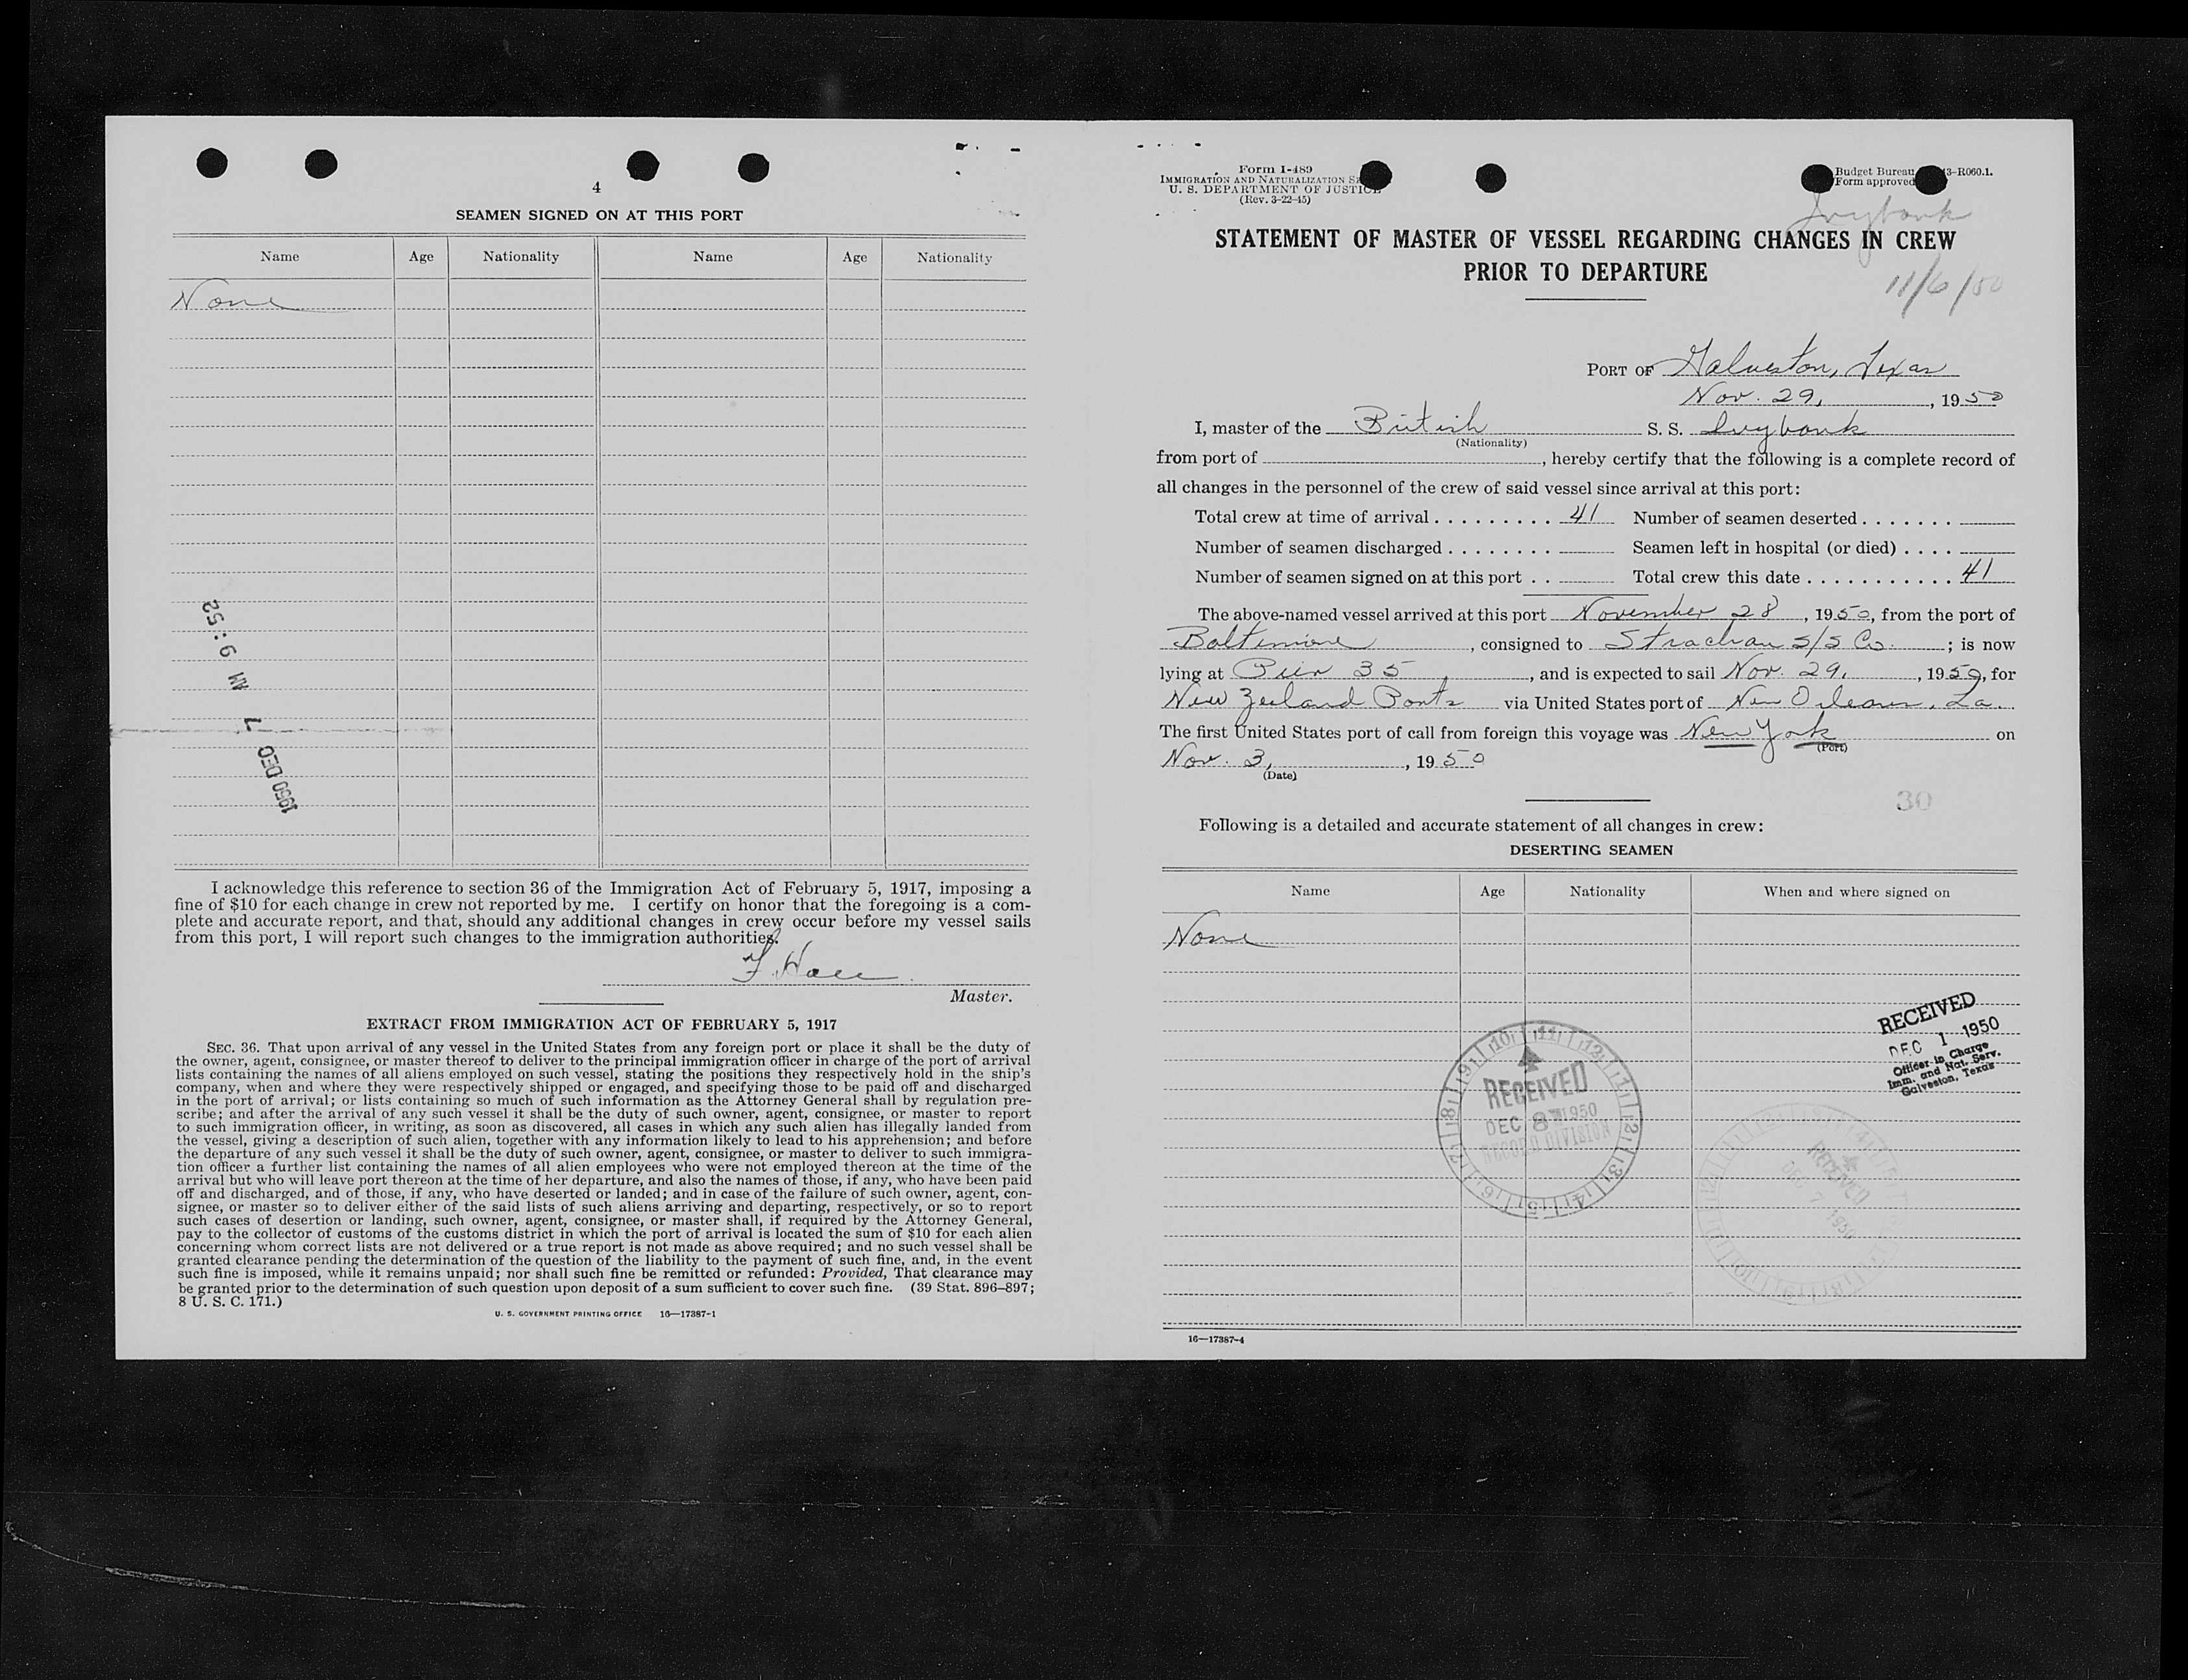 4
SEAMEN SIGNED ON AT THIS PORT
Name Age Nationality Name Age Nationality
None
1950 DEC 7 AM 9:52
I acknowledge this reference to section 36 of the Immigration Act of February 5, 1917, imposing a
fine of $10 for each change in crew not reported by me. I certify on honor that the foregoing is a com-
plete and accurate report, and that, should any additional changes in crew occur before my vessel sails
from this port, I will report such changes to the immigration authorities.
F. Hall
Master.
EXTRACT FROM IMMIGRATION ACT OF FEBRUARY 5, 1917
SEC. 36. That upon arrival of any vessel in the United States from any foreign port or place it shall be the duty of
the owner, agent, consignee, or master thereof to deliver to the principal immigration officer in charge of the port of arrival
lists containing the names of all aliens employed on such vessel, stating the positions they respectively hold in the ship's
company, when and where they were respectively shipped or engaged, and specifying those to be paid off and discharged
in the port of arrival; or lists containing so much of such information as the Attorney General shall by regulation pre-
scribe; and after the arrival of any such vessel it shall be the duty of such owner, agent, consignee, or master to report
to such immigration officer, in writing, as soon as discovered, all cases in which any such alien has illegally landed from
the vessel, giving a description of such alien, together with any information likely to lead to his apprehension; and before
the departure of any such vessel it shall be the duty of such owner, agent, consignee, or master to deliver to such immigra-
tion officer a further list containing the names of all alien employees who were not employed thereon at the time of the
arrival but who will leave port thereon at the time of her departure, and also the names of those, if any, who have been paid
off and discharged, and of those, if any, who have deserted or landed; and in case of the failure of such owner, agent, con-
signee, or master so to deliver either of the said lists of such aliens arriving and departing, respectively, or so to report
such cases of desertion or landing, such owner, agent, consignee, or master shall, if required by the Attorney General,
pay to the collector of customs of the customs district in which the port of arrival is located the sum of $10 for each alien
concerning whom correct lists are not delivered or a true report is not made as above required; and no such vessel shall be
granted clearance pending the determination of the question of the liability to the payment of such fine, and, in the event
such fine is imposed, while it remains unpaid; nor shall such fine be remitted or refunded: Provided, That clearance may
be granted prior to the determination of such question upon deposit of a sum sufficient to cover such fine. (39 Stat. 896–897;
8 U. S. C. 171.)
U. S. GOVERNMENT PRINTING OFFICE 16—17387-1
Form I-489
IMMIGRATION AND NATURALIZATION
U. S. DEPARTMENT OF JUSTICE
(Rev. 3-22-45)
Budget Bureau 3-R060.1.
Form approved
Ivybank
STATEMENT OF MASTER OF VESSEL REGARDING CHANGES IN CREW
PRIOR TO DEPARTURE
11/6/50
PORT OF Galveston, Texas
Nov. 29, , 1950
I, master of the British S. S. Ivybank
(Nationality)
from port of , hereby certify that the following is a complete record of
all changes in the personnel of the crew of said vessel since arrival at this port:
Total crew at time of arrival . . . . . . . . . 41 Number of seamen deserted . . . . . . .
Number of seamen discharged . . . . . . . . Seamen left in hospital (or died) . . . .
Number of seamen signed on at this port . . Total crew this date . . . . . . . . . . . 41
The above-named vessel arrived at this port November 28 , 1950, from the port of
Baltimore , consigned to Strachan S/S Co. ; is now
lying at Pier 35 , and is expected to sail Nov. 29, , 1950, for
New Zeeland Ports via United States port of New Orleans, La.
The first United States port of call from foreign this voyage was New York on
(Port)
Nov. 3, , 1950
(Date)
30
Following is a detailed and accurate statement of all changes in crew:
DESERTING SEAMEN
Name Age Nationality When and where signed on
None
RECEIVED
DEC 1 1950
Officer in Charge
Imm. and Nat. Serv.
Galveston, Texas
RECEIVED
DEC 8 1950
RECORD DIVISION
RECEIVED
DEC 7 1950
16—17387-4